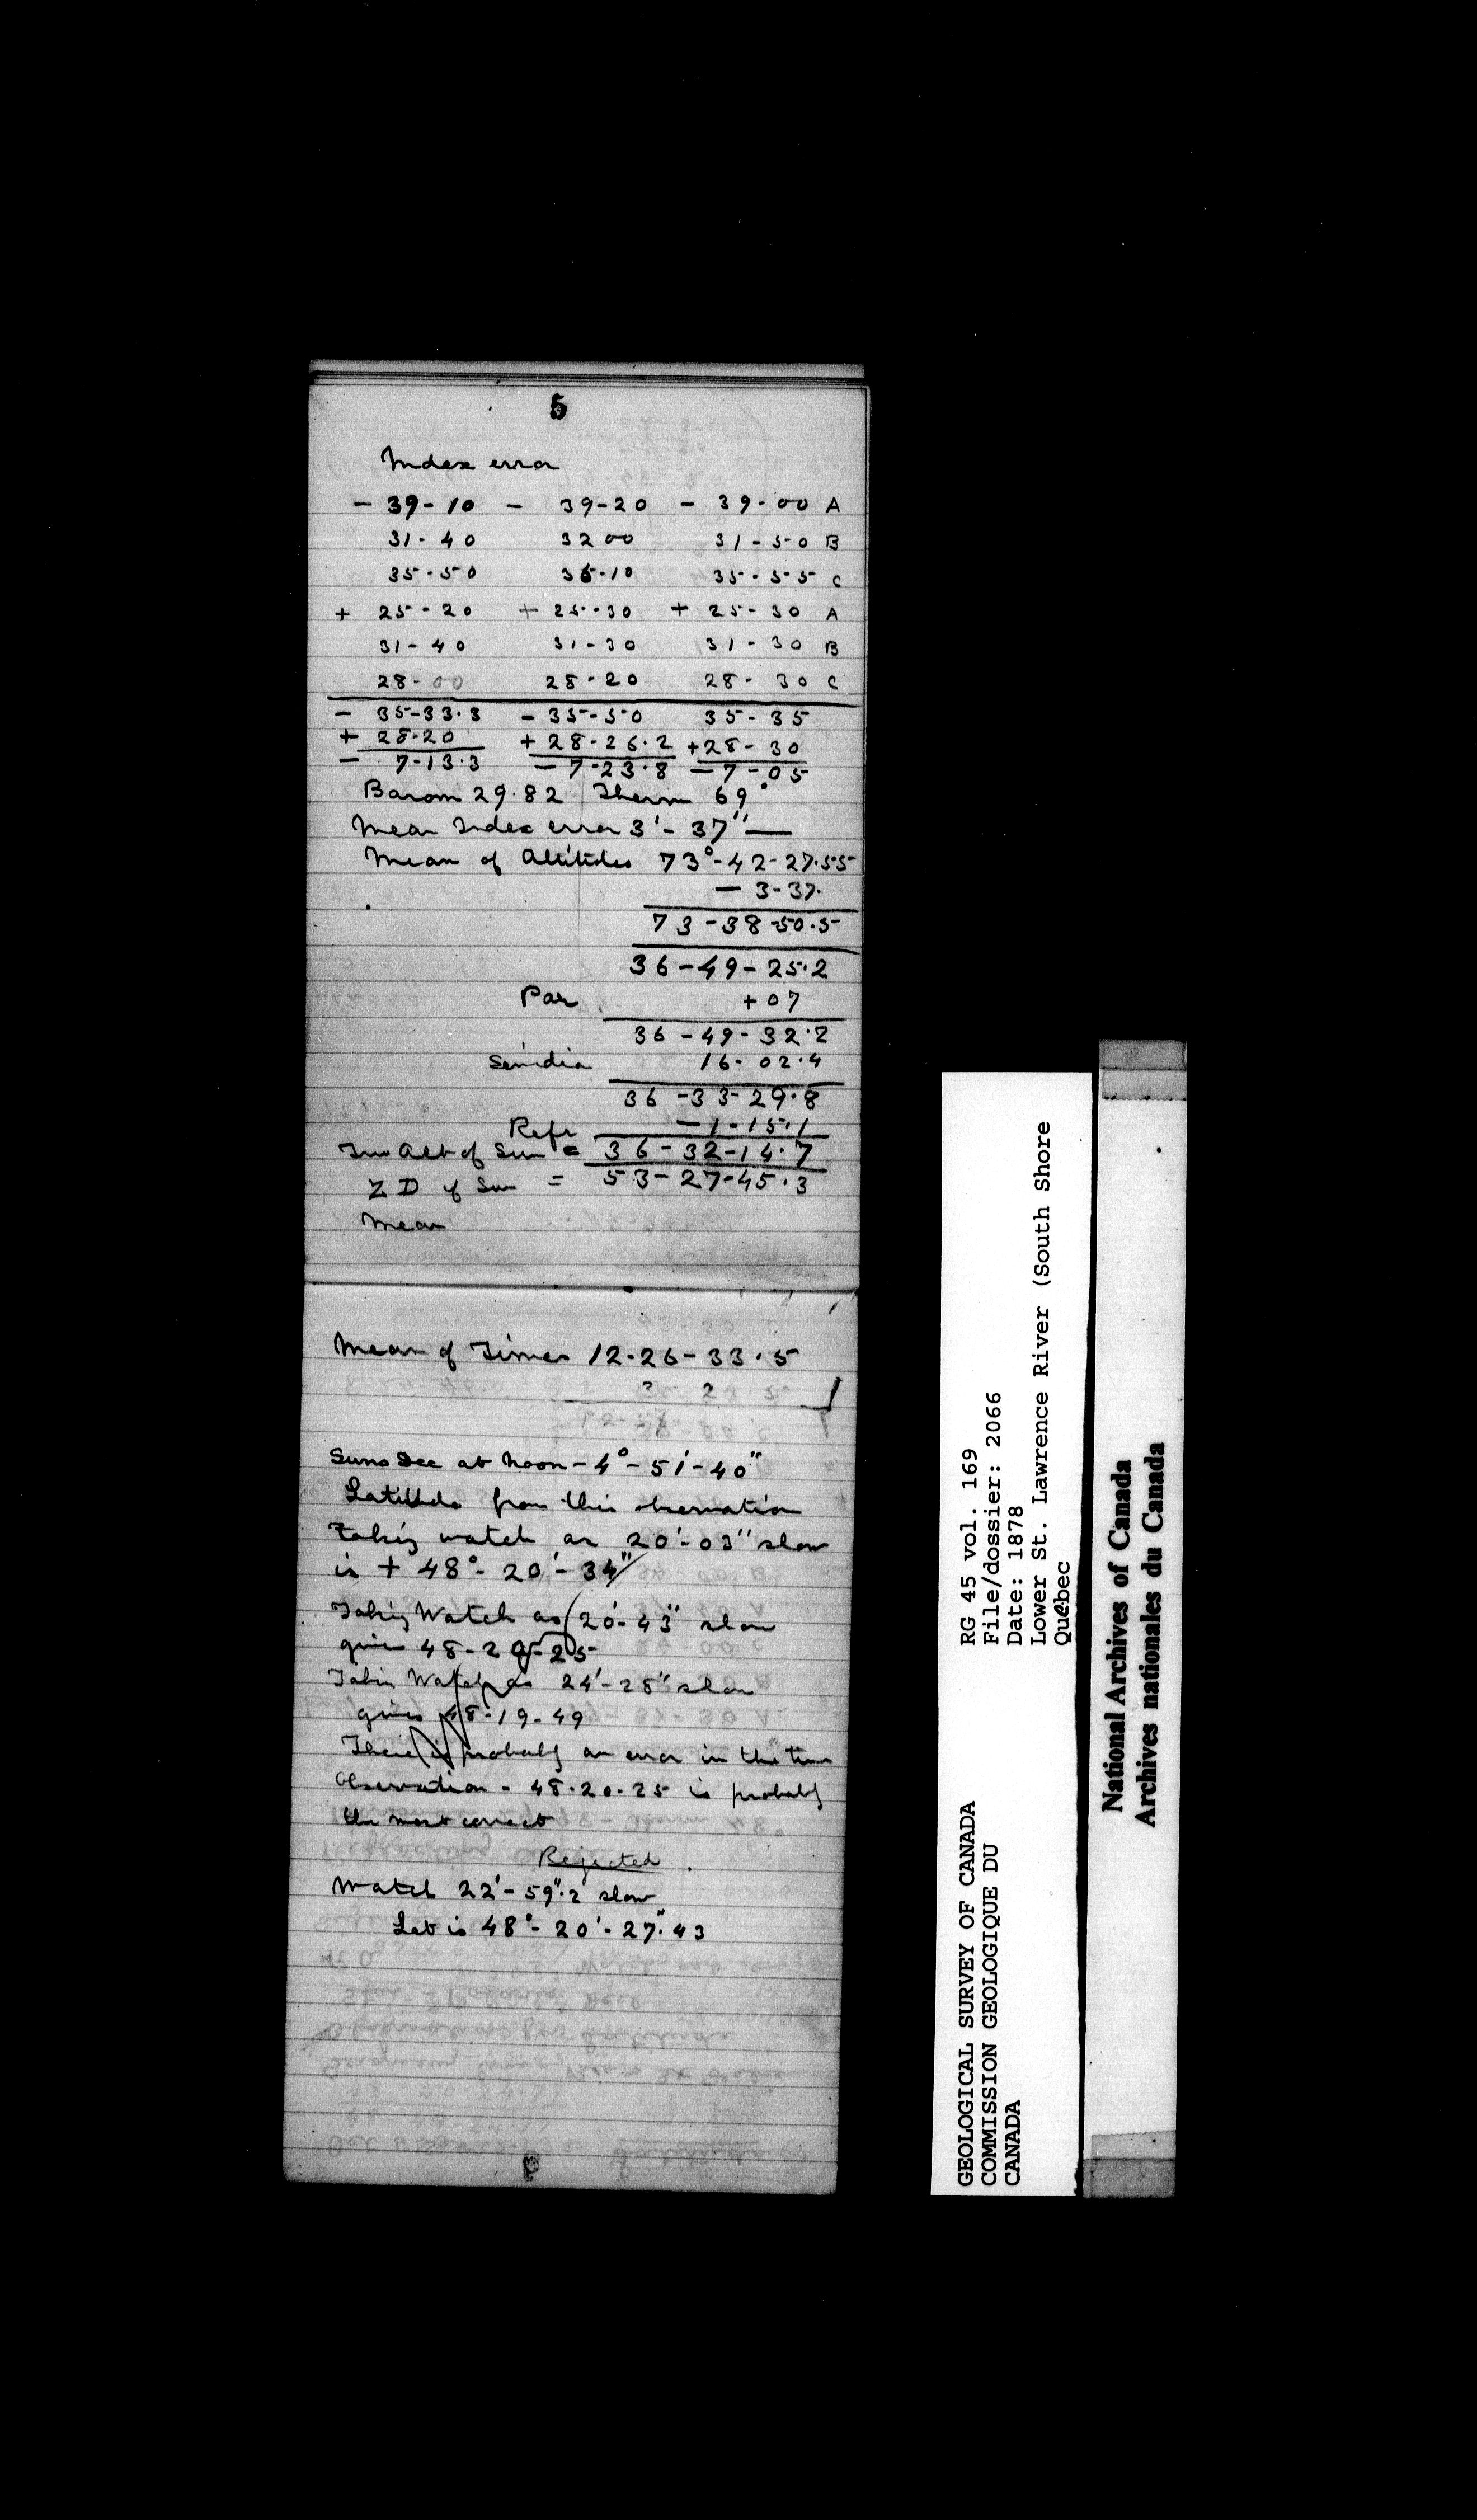 5
Index error
- 39-10 - 39-20 - 39-00 A
31-40 32 00 31-50 B
35-50 36-10 35-55 C
+ 25-20 + 25-30 + 25-30 A
31-40 31-30 31-30 B
28-00 28-20 28-30 C
- 35-33.3 - 35-50 35-35
+ 28-20 + 28-26.2 +28-30
- 7-13.3 - 7-23.8 - 7-05
Barom 29.82 Therm 69°
Mean Index error 3'-37" —
Mean of Altitudes 73°-42-27.55
- 3-37.
73-38-50.5
36-49-25.2
Par +07
36-49-32.2
Semdia 16-02.4
36-33-29.8
Refr -1-15.1
Tru Alt of Sun = 36-32-14.7
ZD of Sun = 53-27-45.3
Mean
Mean of Times 12-26-33.5
3 2
Suns Dec at Noon - 4°-51'-40"
Latitude from this observation
taking watch as 20'-03" slow
is + 48°-20'-34"
Taking Watch as 20'-43" slow
gives 48-20-25
Takin Watch as 24'-28" slow
gives 48-19-49
There is probably an error in the time
Observation - 48-20-25 is probably
the most correct
Rejected.
Watch 22'-59".2 slow
Lat is 48°-20'-27".43
GEOLOGICAL SURVEY OF CANADA
COMMISSION GEOLOGIQUE DU
CANADA
RG 45 vol. 169
File/dossier: 2066
Date: 1878
Lower St. Lawrence River (South Shore
Québec
National Archives of Canada
Archives nationales du Canada